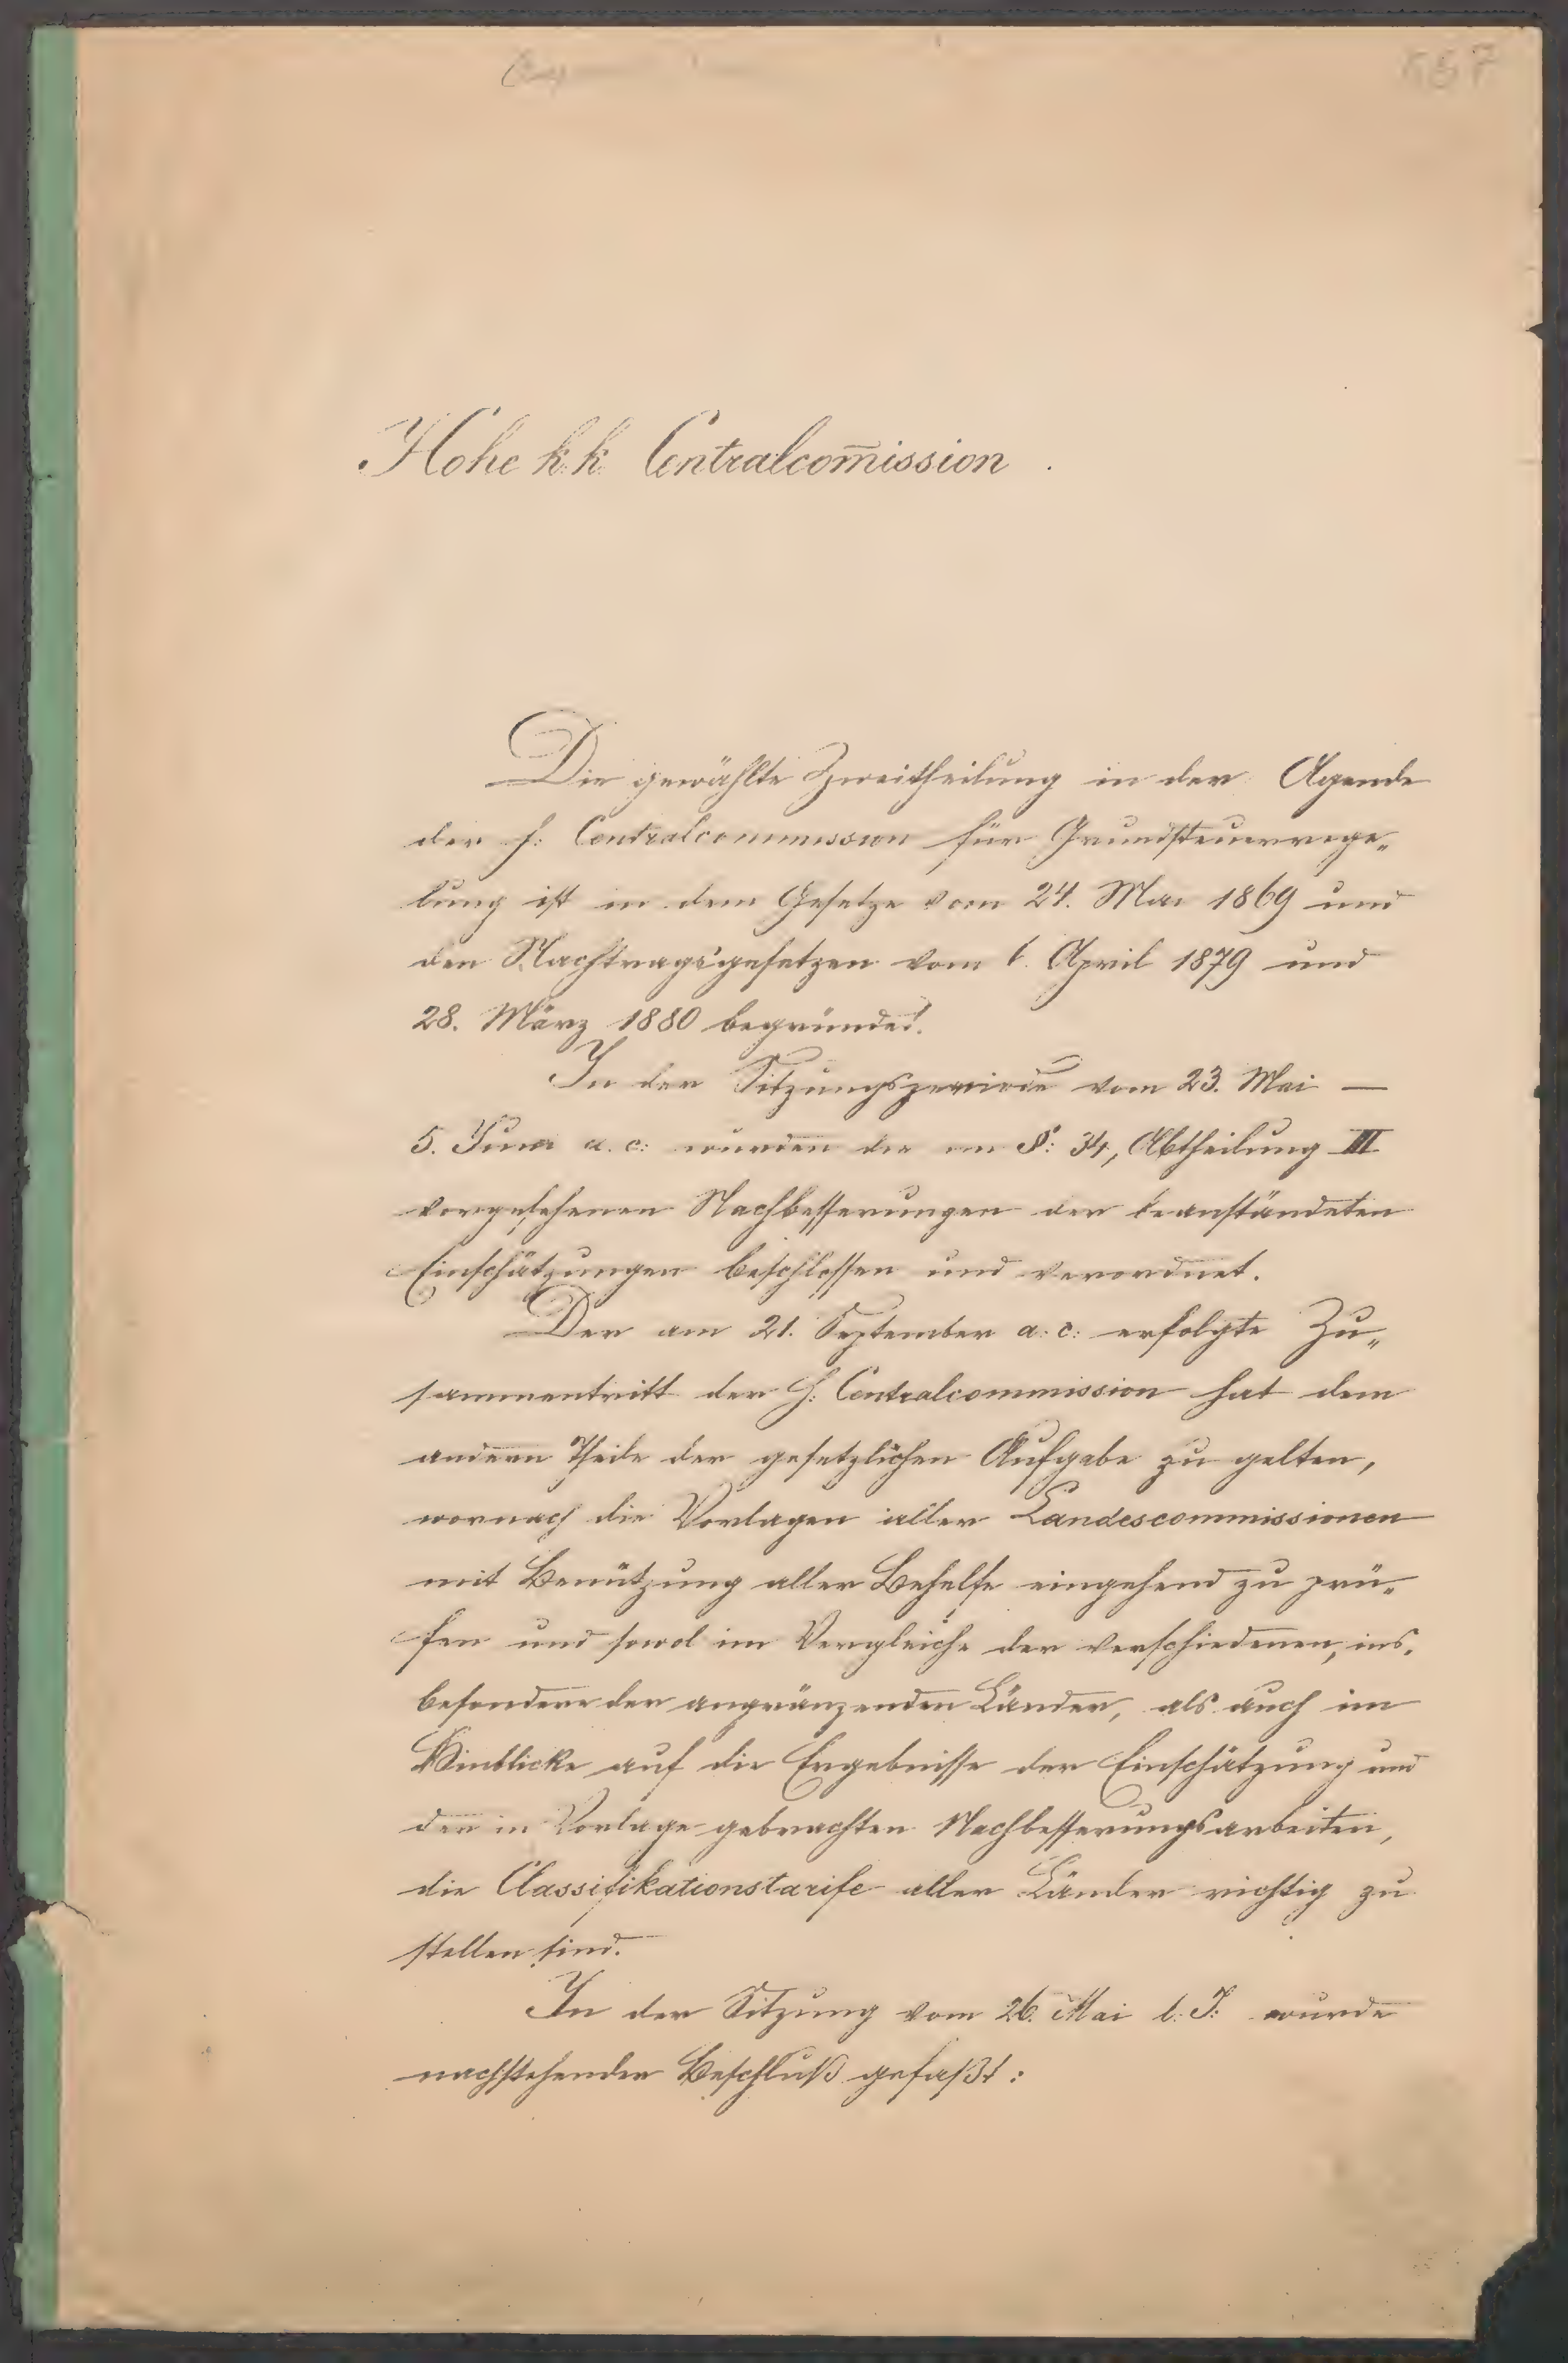 Hohe k. k. Centralcom̅ission.
Die gewählte Zweitheilung in der Agende
der h: Centralcommission für Grundsteuerrege„
lung ist in dem Gesetze vom 24. Mai 1869 und
den Nachtragsgesetzen vom 6. April 1879 und
28. März 1880 begründet.
In der Sitzungsperiode vom 23. Mai —
5. Juni a. c: wurden die im §: 34, Abtheilung III
vorgesehenen Nachbesserungen der beanständeten
Einschätzungen beschlossen und verordnet.
Der am 21. September a: c: erfolgte Zu„
sammentritt der h: Centralcommission hat dem
andern Theile der gesetzlichen Aufgabe zu gelten,
wornach die Vorlagen aller Landescommissionen
mit Benützung aller Behelfe eingehend zu prü„
fen und sowol im Vergleiche der verschiedenen, ins„
besondere der angränzenden Länder, als auch im
Hinblicke auf die Ergebnisse der Einschätzung und
der in Vorlage gebrachten Nachbesserungsarbeiten,
die Classifikationstarife aller Länder richtig zu
stellen sind.
In der Sitzung vom 26. Mai l. J: wurde
nachstehender Beschluß gefaßt: